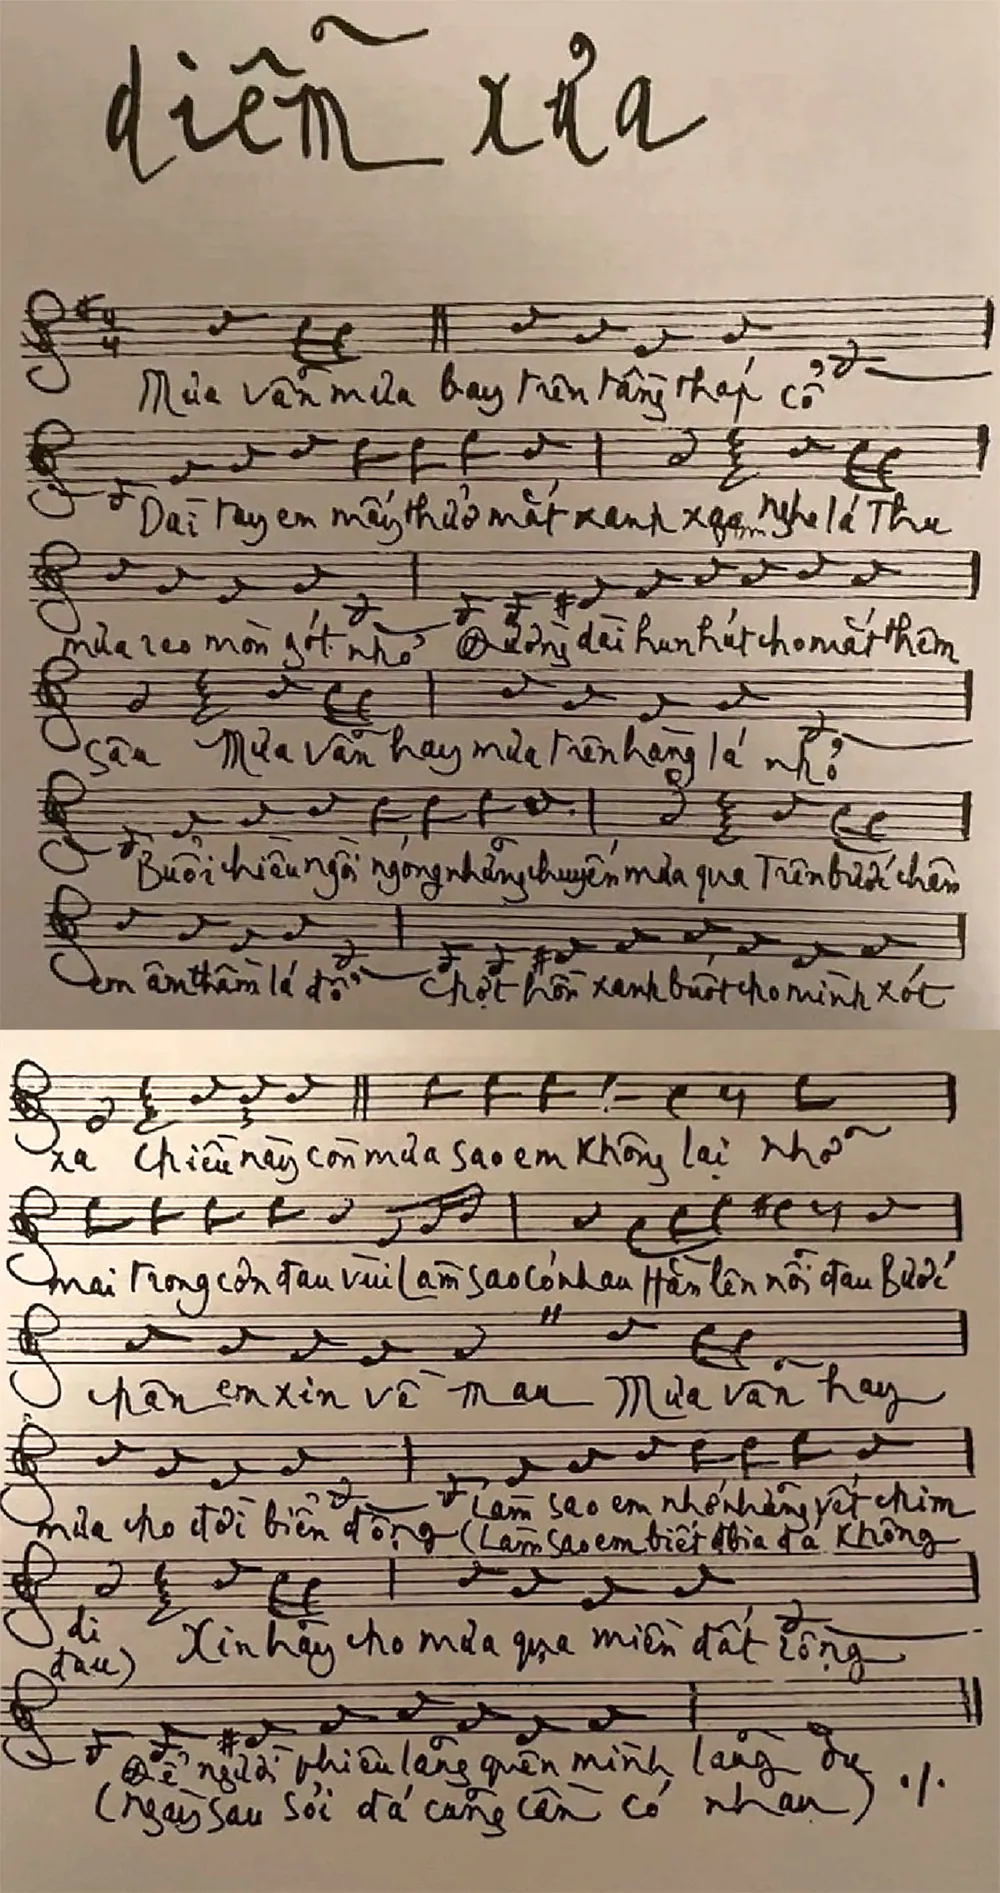 diễm xưa
Mưa vẫn mưa bay trên tầng tháp cổ
Dài tay em mấy thuở mắt xanh xao nghe lá Thu
mưa reo mòn gót nhỏ Đường dài hun hút cho mắt thêm
sâu Mưa vẫn hay mưa trên hàng lá nhỏ
Buổi chiều ngồi ngóng những chuyến mưa qua Trên bước chân
em âm thầm lá đổ chợt hồn xanh buốt cho mình xót
xa Chiều này còn mưa sao em không lại nhỡ
mai trong cơn đau vùi Làm sao có nhau Hằn lên nỗi đau Bước
chân em xin về mau Mưa vẫn hay
mưa cho đời biển động Làm sao em nhớ những vết chim
(Làm sao em biết bia đá không
di Xin hãy cho mưa qua miền đất rộng
đau)
Để người phiêu lãng quên mình lãng du
(ngày sau sỏi đá cũng cần có nhau)